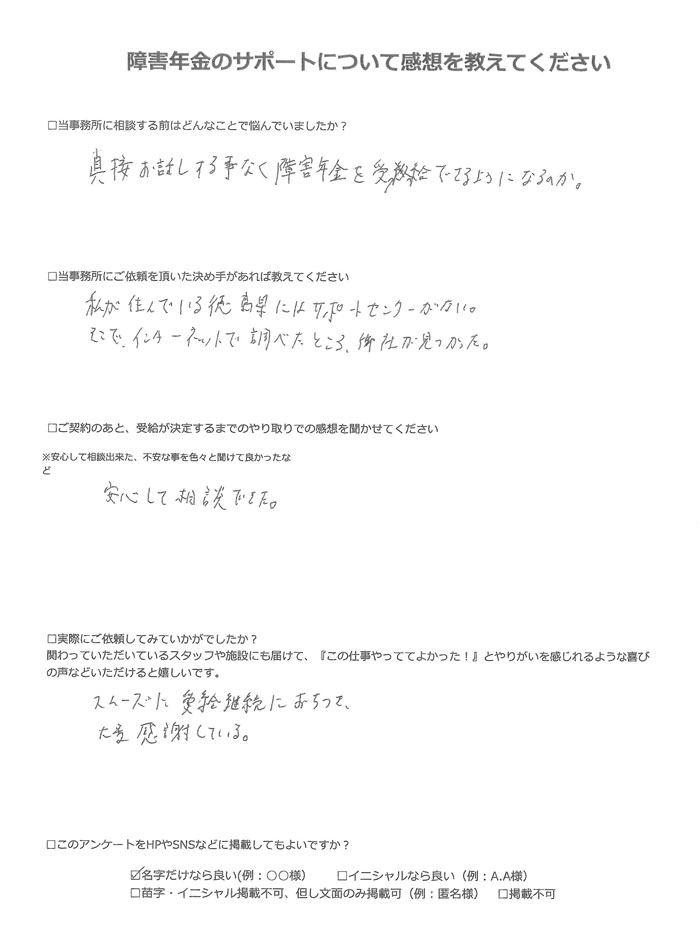 障害年金のサポートについて感想を教えてください
□当事務所に相談する前はどんなことで悩んでいましたか？
直接お話しする事なく障害年金を受給できるようになるのか。
□当事務所にご依頼を頂いた決め手があれば教えてください
私が住んでいる徳島県にはサポートセンターがない。
そこで、インターネットで調べたところ、御社が見つかった。
□ご契約のあと、受給が決定するまでのやり取りでの感想を聞かせてください
※安心して相談出来た、不安な事を色々と聞けて良かったな
ど
安心して相談できた。
□実際にご依頼してみていかがでしたか？
関わっていただいているスタッフや施設にも届けて、『この仕事やっててよかった！』とやりがいを感じれるような喜び
の声などいただけると嬉しいです。
スムーズに受給継続に
感謝している。
□このアンケートをHPやSNSなどに掲載してもよいですか？
☑名字だけなら良い(例：〇〇様)　□イニシャルなら良い（例：A.A様）
□苗字・イニシャル掲載不可、但し文面のみ掲載可（例：匿名様）　□掲載不可